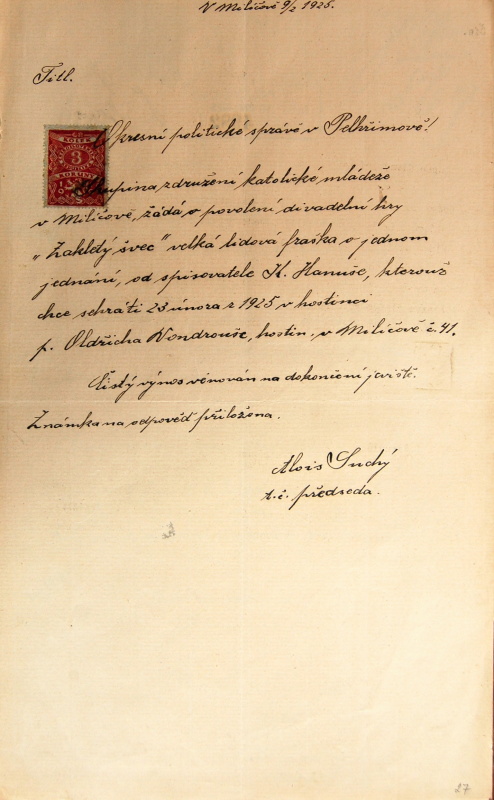 V Miličově 9/2 1925.
Titl.
Okresní politické správě v Pelhřimově!
Skupina združení katolické mládeže
v Miličově, žádá o povolení divadelní hry
„Zakletý švec" velká lidová fraška o jednom
jednání, od spisovatele K. Hanuše, kterouž
chce sehráti 23 února r 1925 v hostinci
p. Oldřicha Vondrouše, hostin. v Miličově č. 41.
Čistý výnos věnován na dokončení jeviště.
Známka na odpověď přiložena.
Alois Suchý
t. č. předseda.
3
27